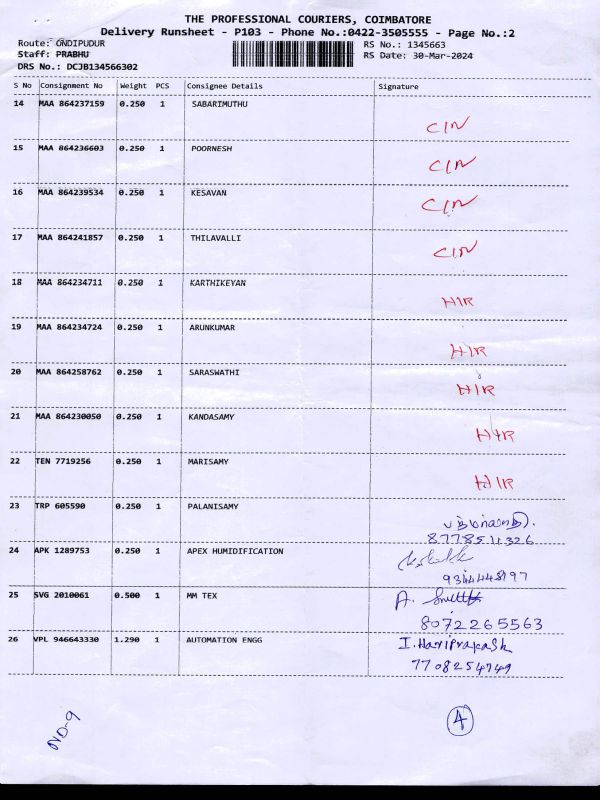 THE PROFESSIONAL COURIERS, COIMBATORE
Delivery Runsheet - P103 - Phone No.:0422-3505555 - Page No.:2
Route: ONDIPUDUR RS No.: 1345663
Staff: PRABHU RS Date: 30-Mar-2024
DRS No.: DCJB134566302
S No Consignment No Weight PCS Consignee Details Signature
14 MAA 864237159 0.250 1 SABARIMUTHU
CIN
15 MAA 864236603 0.250 1 POORNESH
CIN
16 MAA 864239534 0.250 1 KESAVAN
CIN
17 MAA 864241857 0.250 1 THILAVALLI
CIN
18 MAA 864234711 0.250 1 KARTHIKEYAN
HIR
19 MAA 864234724 0.250 1 ARUNKUMAR
HIR
20 MAA 864258762 0.250 1 SARASWATHI
HIR
21 MAA 864230050 0.250 1 KANDASAMY
HIR
22 TEN 7719256 0.250 1 MARISAMY
HIR
23 TRP 605590 0.250 1 PALANISAMY
8778511326
24 APK 1289753 0.250 1 APEX HUMIDIFICATION
25 SVG 2010061 0.500 1 MM TEX
A.
8072265563
26 VPL 946643330 1.290 1 AUTOMATION ENGG
I. Hariprakash
7708254749
ND-9
4